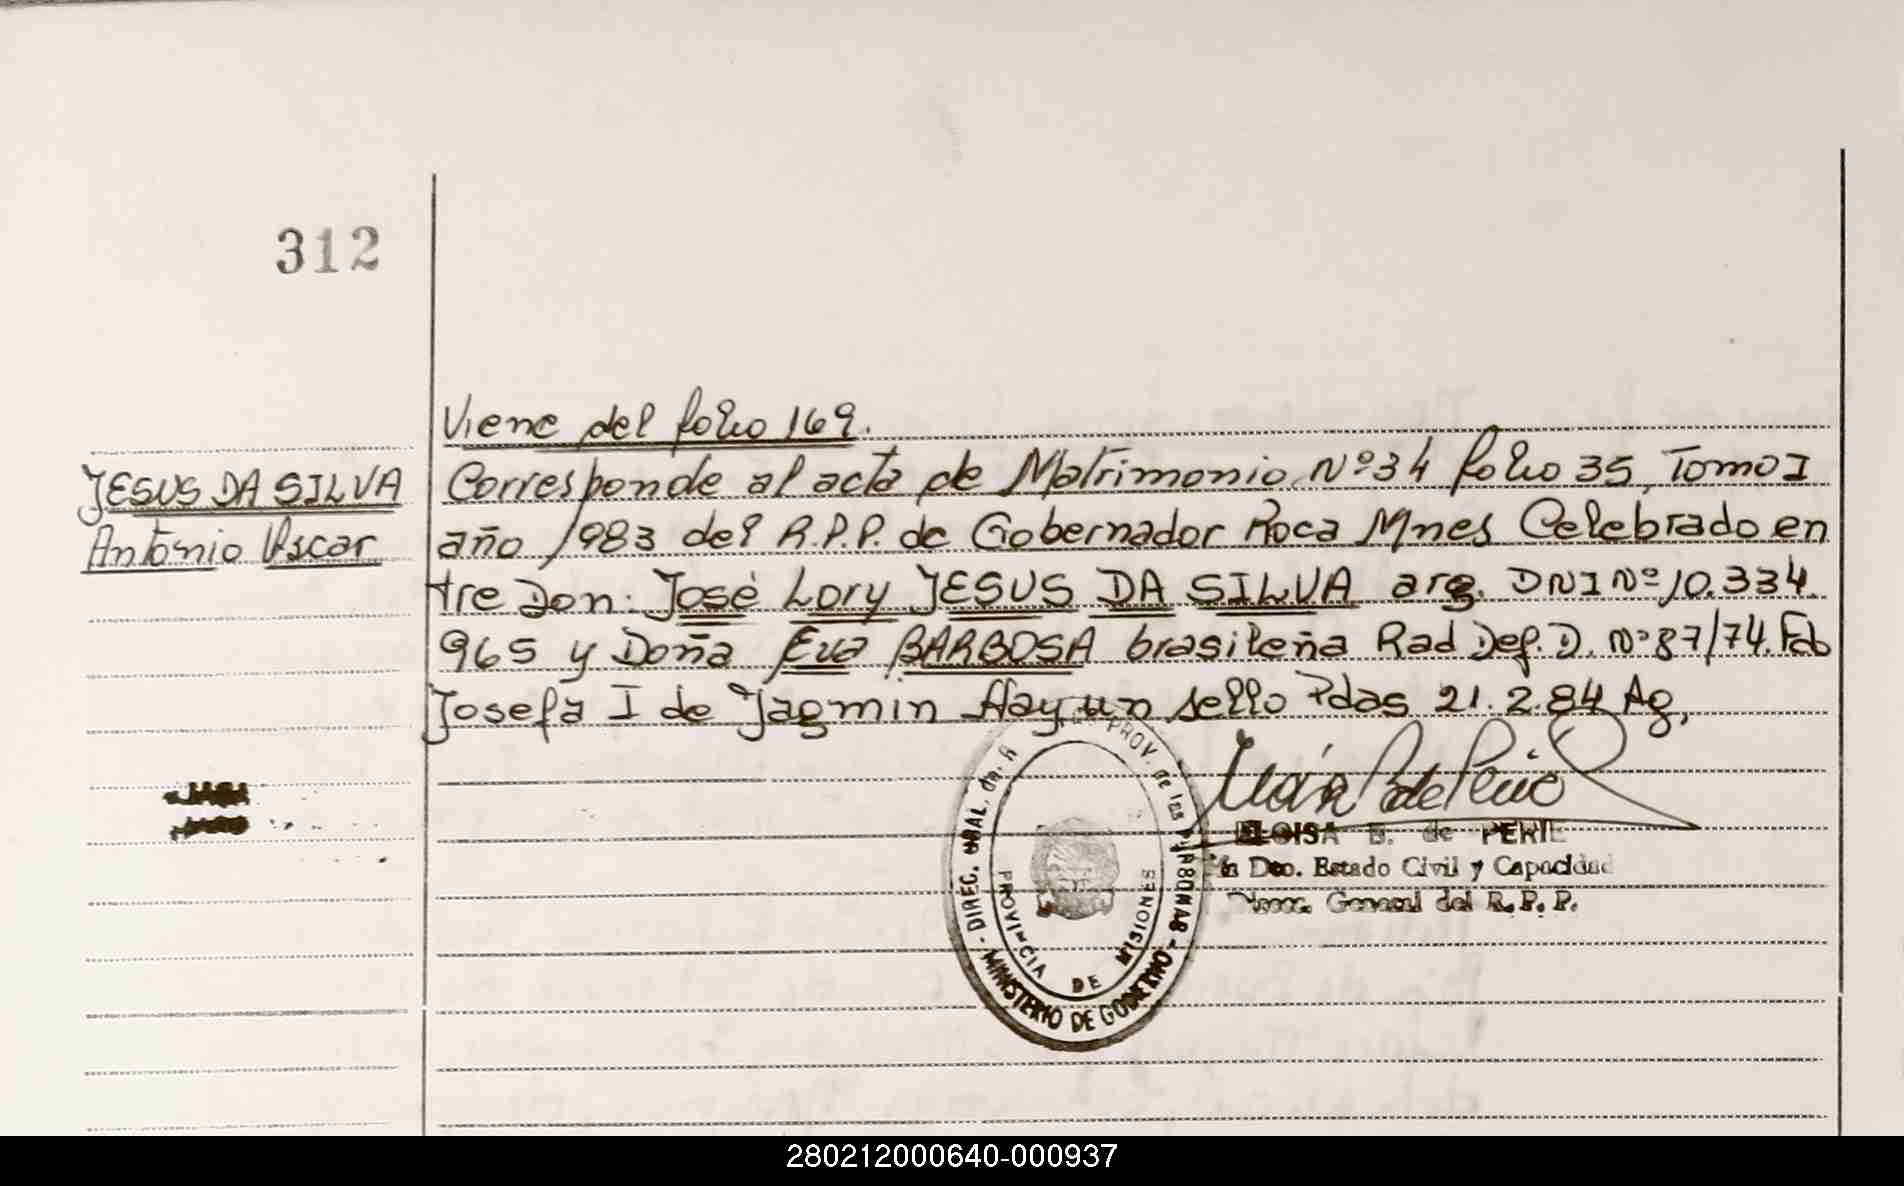 312
Viene del folio 169.
JESUS DA SILVA
Antonio Oscar
Corresponde al acta de Matrimonio Nº 34 folio 35, Tomo I
año 1983 del R.P.P. de Gobernador Roca Mnes Celebrado en
tre Don. José Lory JESUS DA SILVA arg. DNI Nº 10.334.
965 y Doña Eva BARBOSA brasileña Rad Def. D. Nº 87/74. Fdo
Josefa I de Jagmin Hay un sello Pdas 21.2.84 Ag,
ELOISA B. de PERIE
Dto. Estado Civil y Capacidad
General del R. P. P.
DIREC. GRAL. del R PROV. de las PERSONAS
PROVINCIA DE MISIONES
MINISTERIO DE GOBIERNO
280212000640-000937